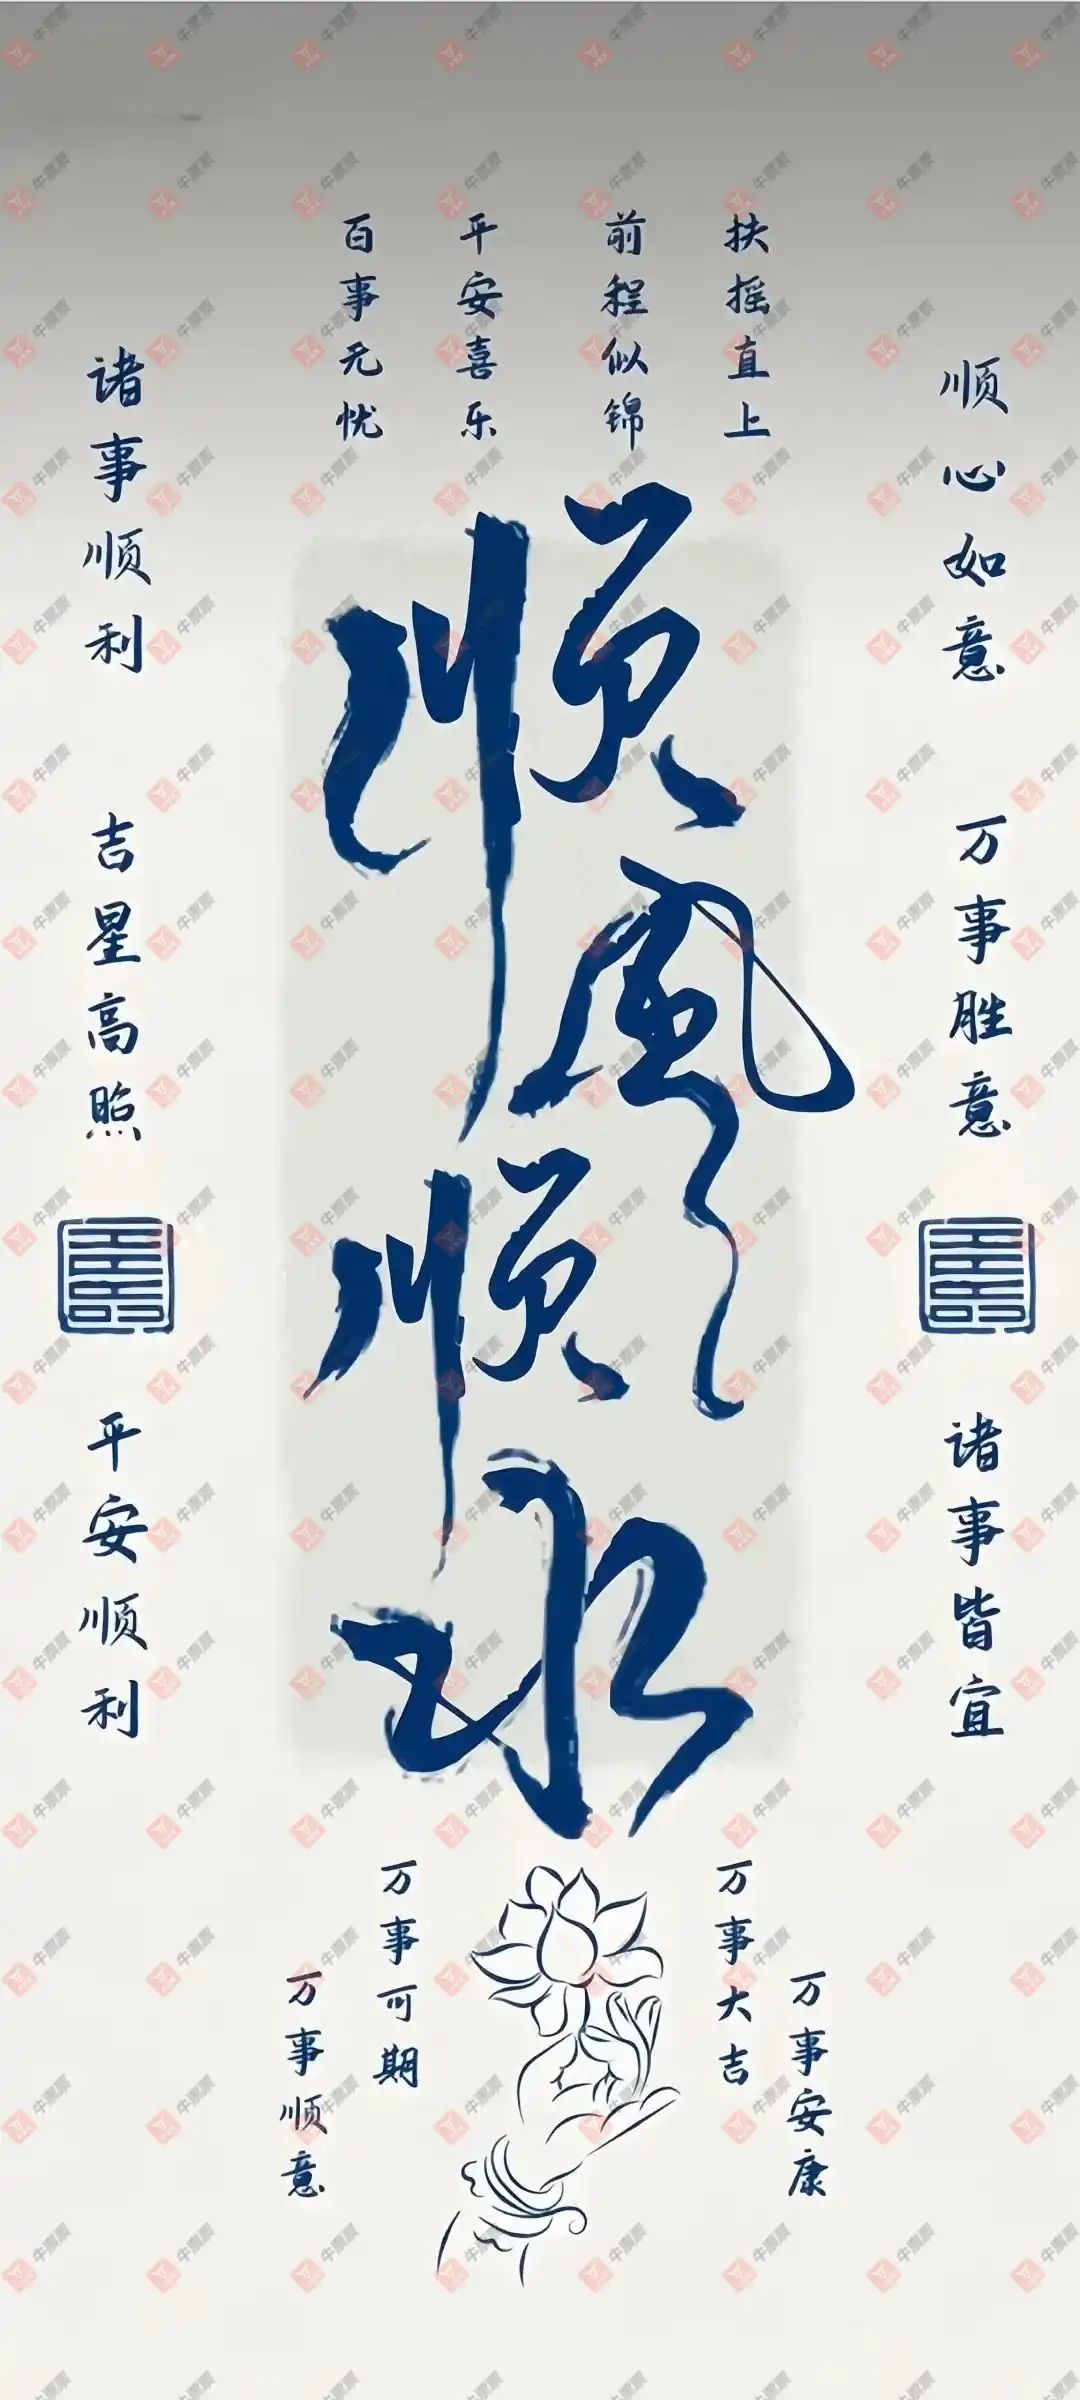 扶摇直上
前程似锦
平安喜乐
百事无忧
顺心如意
万事胜意
诸事皆宜
顺风顺水
诸事顺利
吉星高照
平安顺利
万事大吉
万事安康
万事可期
万事顺意
牛票票